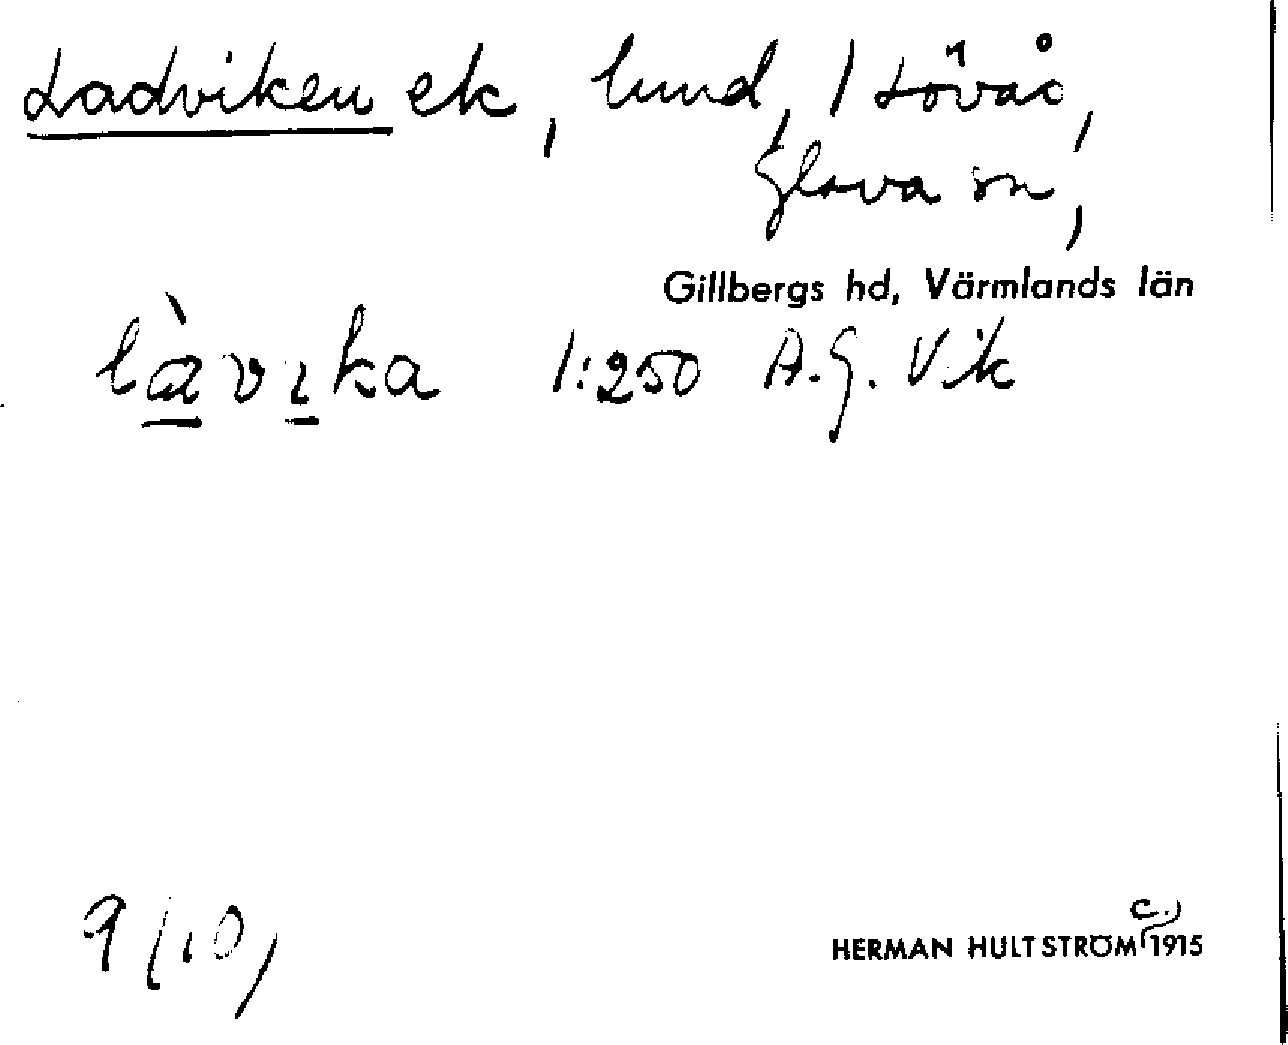 Ladviken ek, lund, 1 Lövåo,
Glava sn,
Gillbergs hd, Värmlands län
làvıka 1:250 A.G. Vik
9/10,
c.)
HERMAN HULTSTRÖM 1915